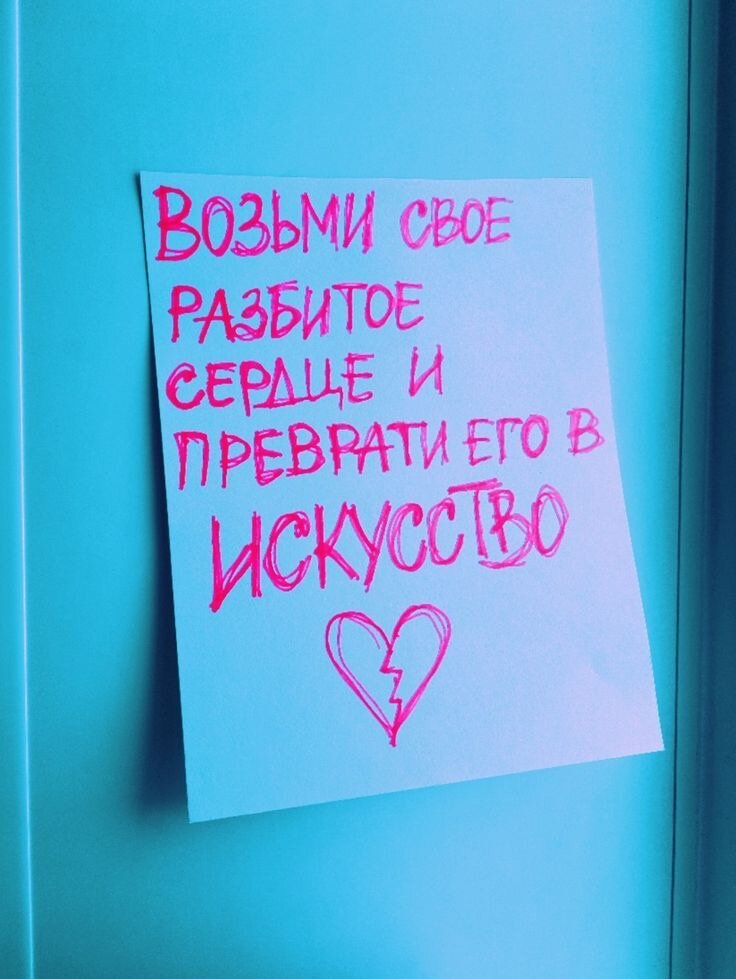 ВОЗЬМИ СВОЕ
РАЗБИТОЕ
СЕРДЦЕ И
ПРЕВРАТИ ЕГО В
ИСКУССТВО